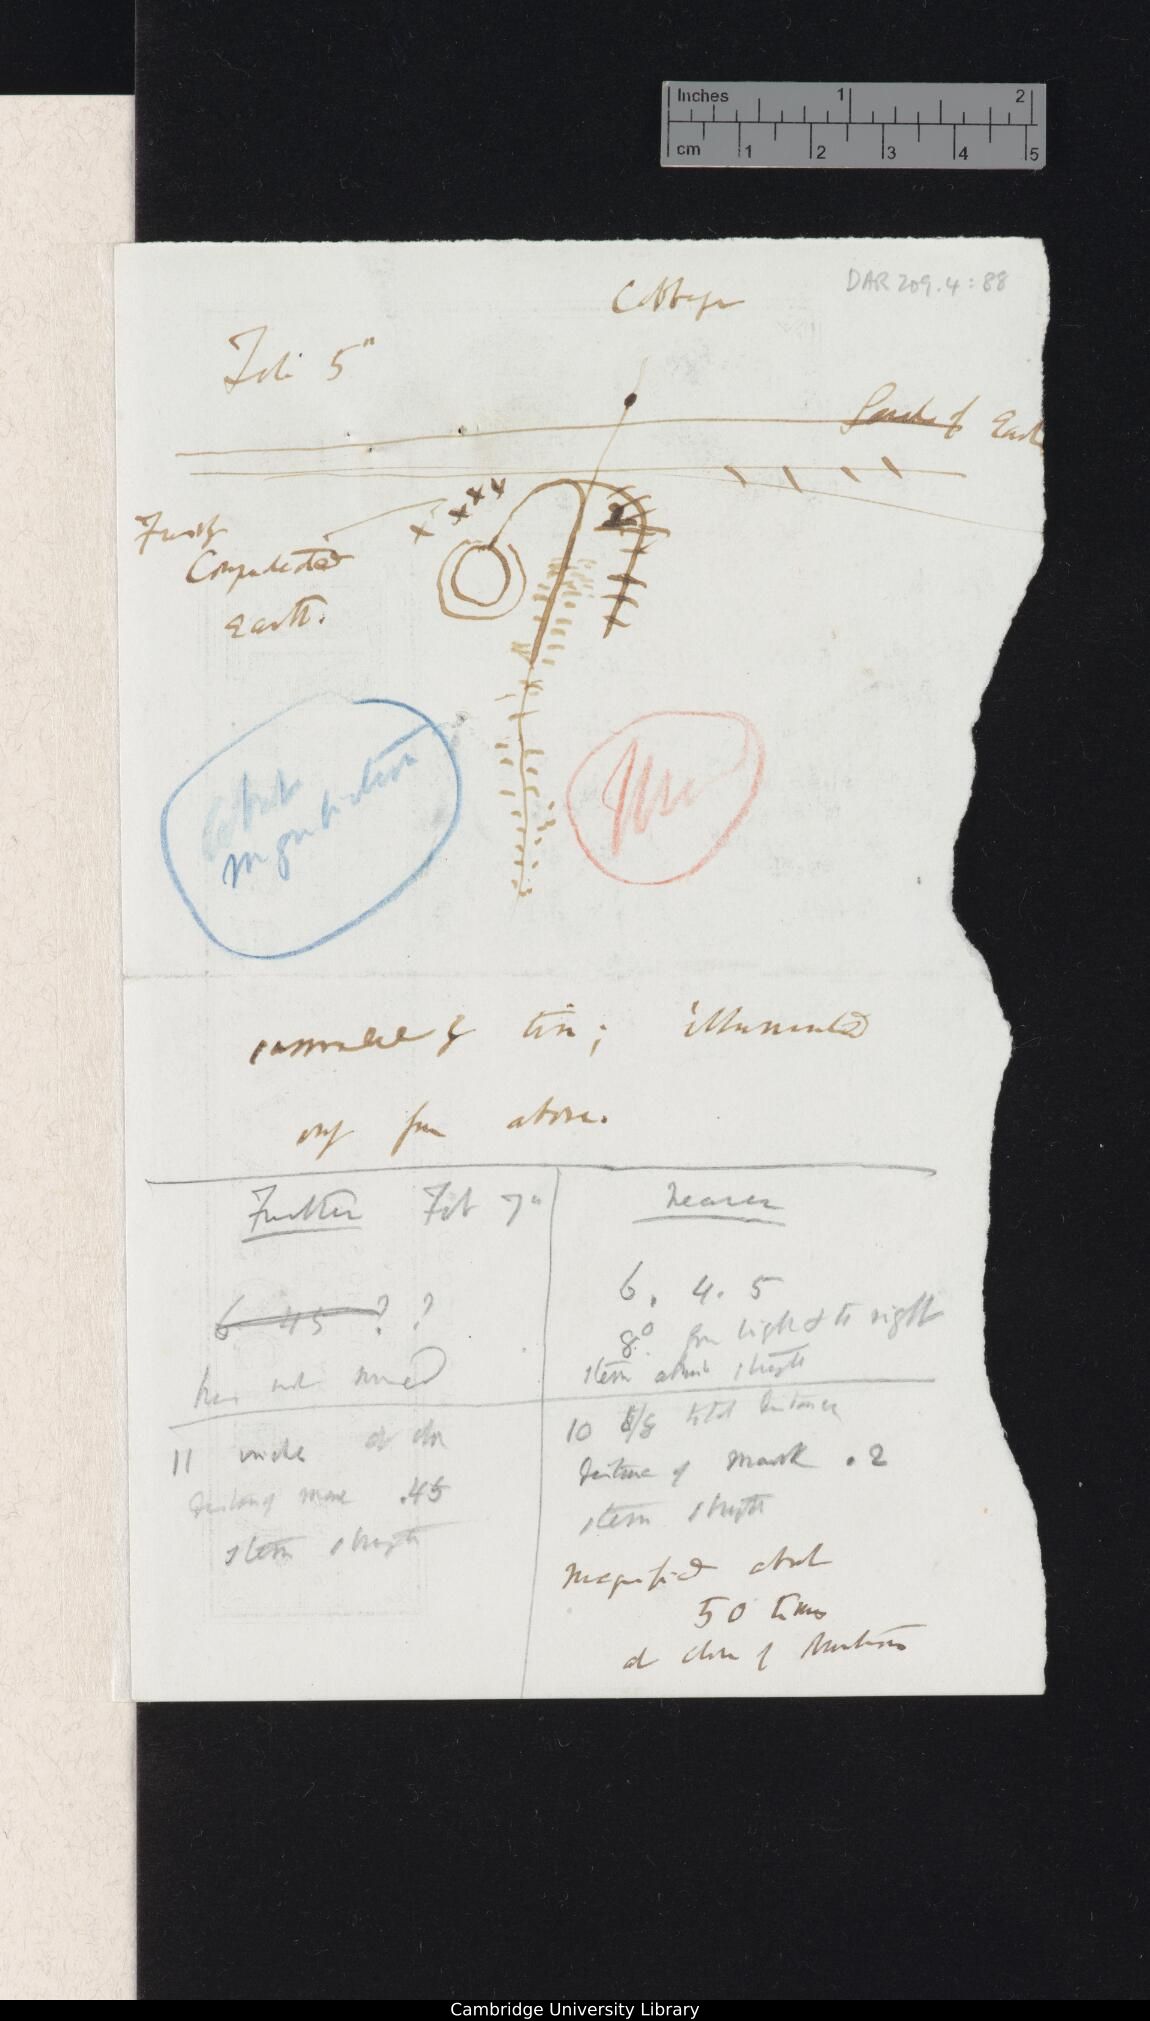 Inches 1 2
cm 1 2 3 4 5
DAR 209.4:88
Cabbage
Feb. 5"
Surface of Earth
Compacted
earth.
about
magnification
Used
of tin; illuminated
only from above.
Further Feb 7"
6 45 ? ?
has not moved
11
.45
stem straight
Nearer
6. 4. 5
8° from light & to right
stem almost straight
10 total distance
distance of mark .2
stem straight
Magnified about
50 times
at close of
Cambridge University Library